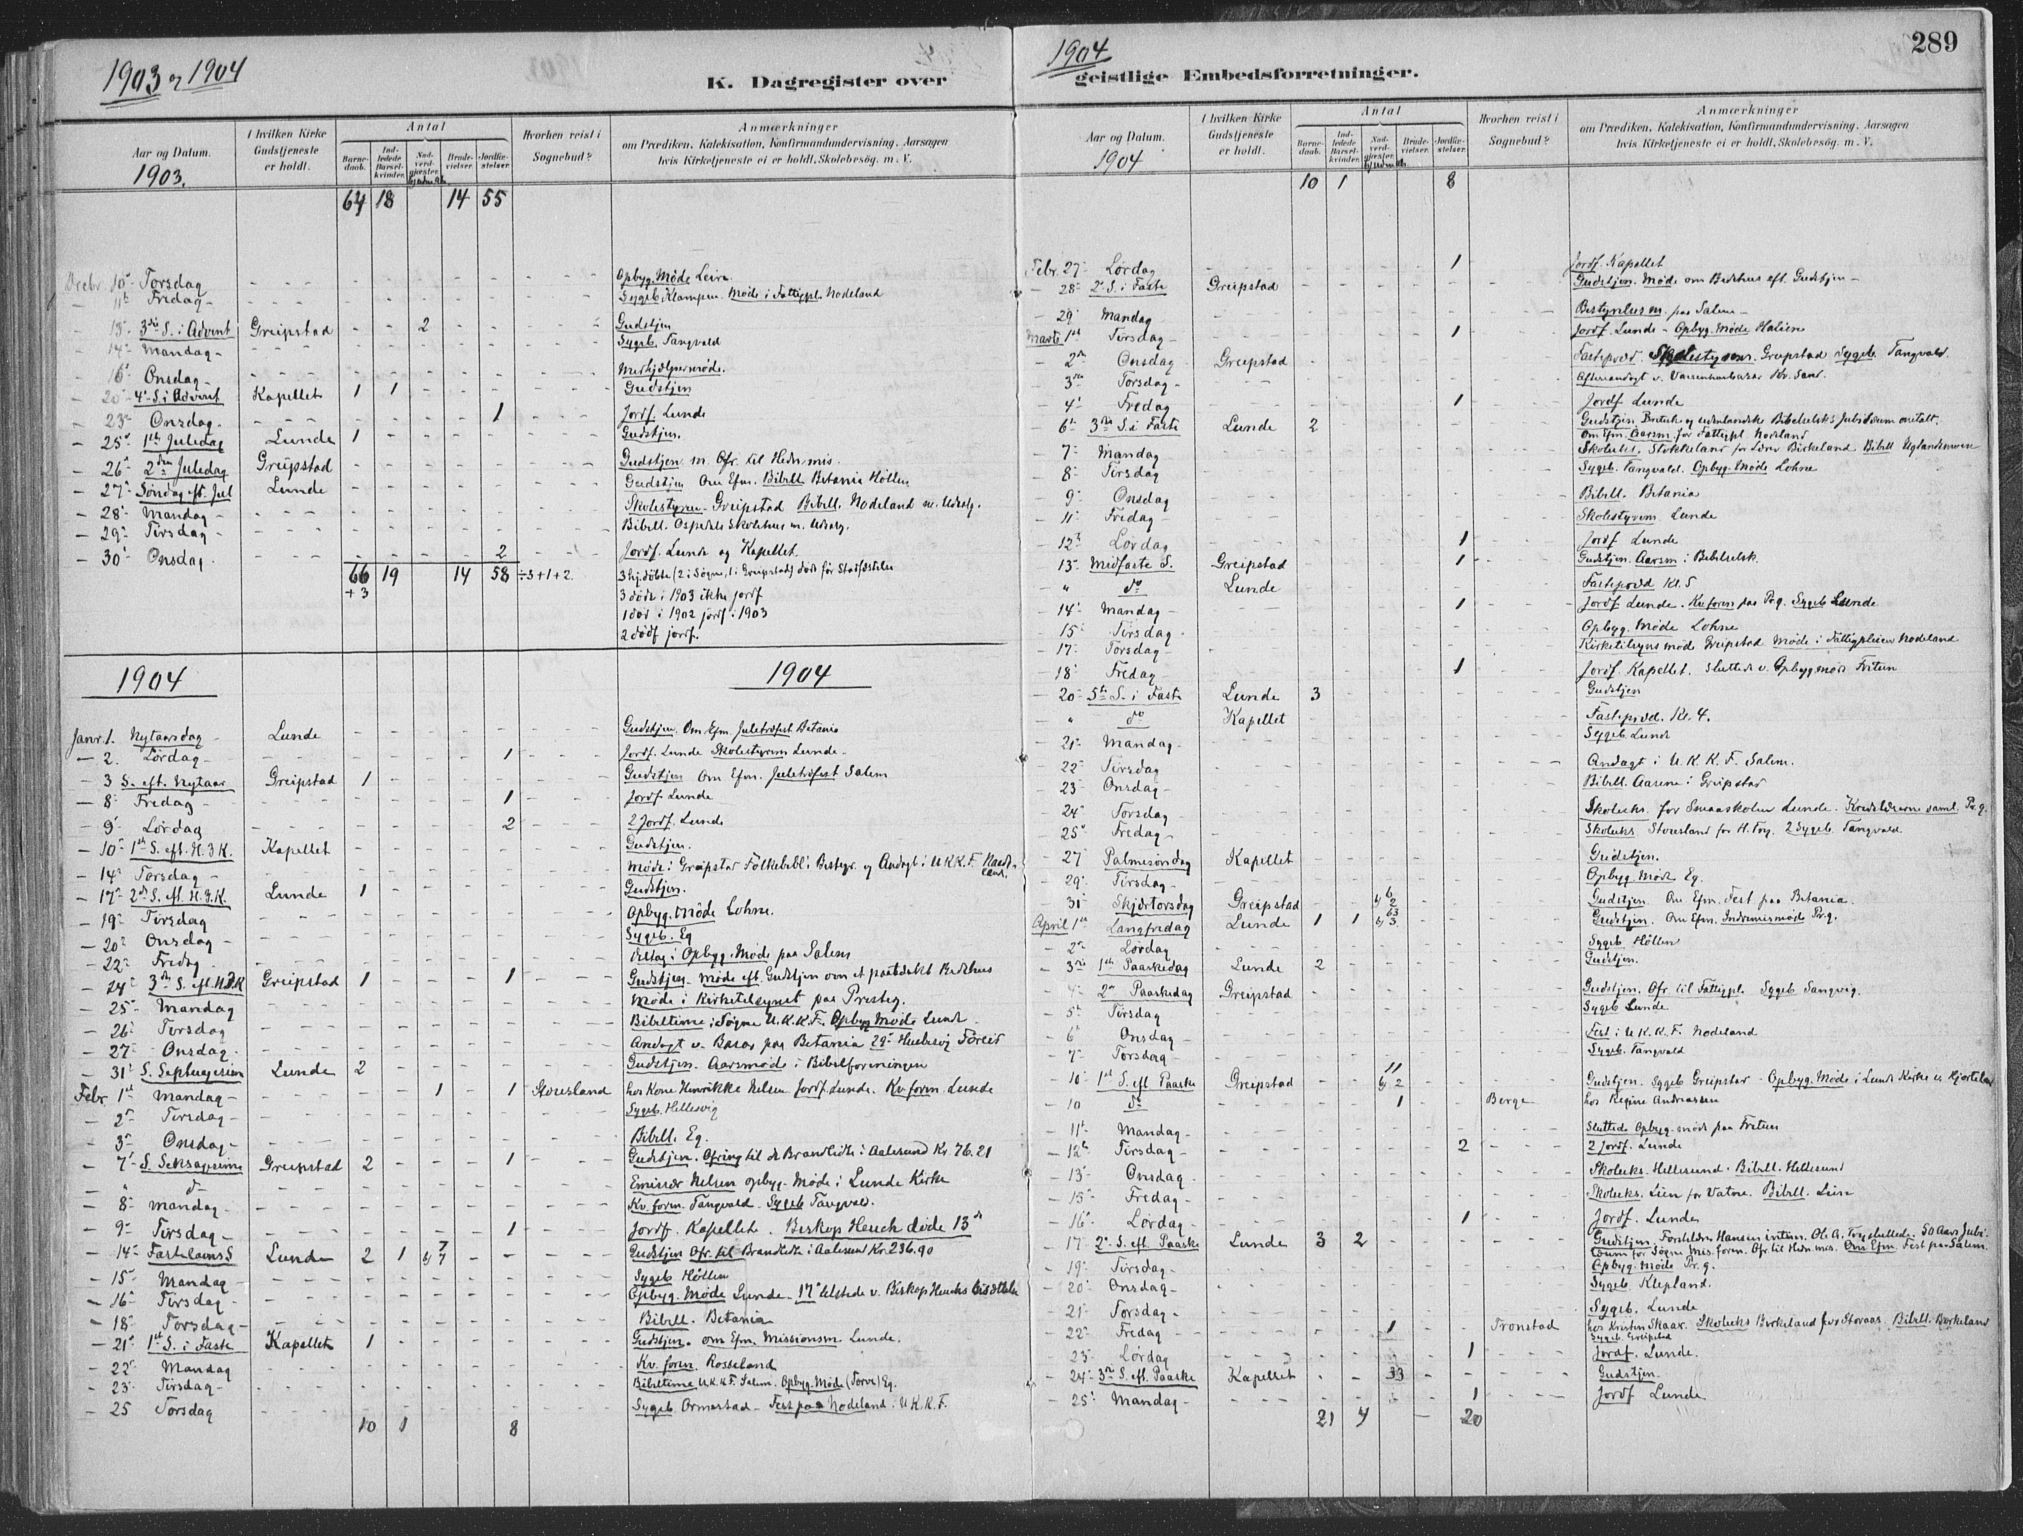 1903 og 1904
K. Dagregister over
Aar og Datum.
1903.
I hvilken Kirke Gudstjeneste er holdt.
Antal
Barnedaab. Indledede Barselkvinder. Nadverdgjester. Brudevielser. Jordfæstelser.
Hvorhen reist i Sognebud?
Anmærkninger
om Prædiken, Katekisation, Konfirmandundervisning, Aarsagen
hvis Kirketjeneste ei er holdt, Skolebesøg. m. V.
64 18 14 55
Dcebr. 10 Torsdag - Opbyg. Møde Leire
11 Fredag - Sygeb. Klampen. Møde i Fattigpl. Nodeland
- 13 3die S. i Advent Greipstad 2 Gudstjen
- 14 Mandag - Sygeb. Tangvald
16 Onsdag -
- 20 4de S. i Advent Kapellet 1 1 Gudstjen
- 23 Onsdag 1 Jordf. Lunde
- 25 1ste Juledag Lunde 1 Gudstjen.
- 26 2den Juledag Greipstad Gudstjen m. Ofr. til Hedn.mis.
- 27 Søndag eft. Jul Lunde Gudstjen Om Efm. Bibell. Betania Høllen
- 28 Mandag - Skolestyren. Greipstad Bibell. Nodeland m. Udsalg.
- 29 Tirsdag - Bibell. Ospedals Skolehus m. Udsalg.
- 30 Onsdag 2 Jordf. Lunde og Kapellet
66 19 14 58 ÷3+1+2
+3
3 hj.døbte (2 i Søgne, 1 i Greipstad) døde før Stadfæstelse
3 døde i 1903 ikke jordf
1 død i 1902 jordf. i 1903
2 dødf jordf.
1904 1904
Janr. 1. Nytaarsdag Lunde Gudstjen. Om Efm. Juletræfest Betania
- 2. Lørdag - 1 Jordf. Lunde Skolestyrem Lunde -
- 3 S. eft. Nytaar Greipstad 1 Gudstjen Om Efm. Juletræfest Salem
- 8 Fredag - 1 Jordf. Lunde
- 9 Lørdag 2 2 Jordf. Lunde
- 10 1ste S. eft. H.3K. Kapellet Gudstjen.
- 14 Torsdag - Møde i Greipstad Folkebibl. Bestyr. og Andagt i U.K.K.F.
- 17 2den S. eft. H.3.K. Lunde 1 Gudstjen.
- 19 Tirsdag Opbyg. Møde Lohne.
- 20 Onsdag - Sygeb. Eg
- 22 Fredag - Deltog i Opbyg. Møde paa Salem
- 24 3die S. eft. H.3.K Greipstad 1 1 Gudstjen - Møde eft. Gudstjen om et paatænkt Bedehus
- 25 Mandag Møde i Kirketilsynet paa Presteg.
- 26 Tirsdag Bibeltime i Søgne U.K.K.F. Opbyg Møde Lunde
- 27 Onsdag Andagt v. Basar paa Betania
- 31 S. Septuagesim Lunde 2 Gudstjen. Aarsmøde i Bibelforeningen
Febr 1ste Mandag - 1 1 Storesland hos Kone Henrikke Nilsen Jordf. Lunde. Kv. foren. Lunde
- 2 Tirsdag - Sygeb. Hellesvig
- 3 Onsdag - Bibell. Eg.
- 7 S. Seksagesima Greipstad 2 1 Gudstjen. Ofring til de Brandlidte i Aalesund Kr. 76.21
- " do Emissær Nilsen opbyg. Møde i Lunde Kirke
- 8 Mandag - Kv. foren. Tangvald. Sygeb. Tangvald.
- 9 Tirsdag - 1 Jordf. Kapellet. Biskop Heuch døde 13de
- 14 Fastelavns S Lunde 2 1 Gudstjen Ofr. til Brandlidte i Aalesund Kr. 236.90
- 15 Mandag - Sygeb Høllen
- 16 Tirsdag - Opbyg. Møde Lunde.
- 18 Torsdag - Bibell. Betania
- 21 1ste S. i Faste Kapellet 1 Gudstjen. om Efm. Missionsm Lunde.
- 22 Mandag Kv. foren. Rosseland
- 23 Tirsdag - Bibeltime U.K.K.F. Salem. Opbyg. Møde Eg.
- 25 Torsdag Sygeb Ormestad - Fest paa Nodeland i U.K.K.F.
10 1 8
1904
geistlige Embedsforretninger.
289
Aar og Datum.
1904
I hvilken Kirke Gudstjeneste er holdt.
Antal
Barnedaab. Indledede Barselkvinder. Nadverdgjester. Brudevielser. Jordfæstelser.
Hvorhen reist i Sognebud?
Anmærkninger
om Prædiken, Katekisation, Konfirmandundervisning, Aarsagen
hvis Kirketjeneste ei er holdt, Skolebesøg. m. V.
10 1 8
Febr. 27 Lørdag 1 Jordf. Kapellet
- 28 2den S. i Faste Greipstad Gudstjen. Møde om Bedehus eft. Gudstjen -
- 29 Mandag Bestyrelsesm. paa Salem -
Marts 1ste Tirsdag - 1 Jordf. Lunde - Opbyg. Møde
- 2den Onsdag Greipstad Fastepræd. Skolestyrem. Greipstad Sygeb. Tangvald.
- 3die Torsdag -
- 4 Fredag 1 Jordf Lunde
- 6 3die S. i Faste Lunde 2 Gudstjen. Britiske og udenlandske Bibelselsks Jubilæum omtalt.
Om Efm. Aarsm. for Fattigpl. Nodeland
- 7 Mandag Skoleeks. Stokkeland for Birkeland Bibell
- 8 Tirsdag Sygeb. Tangvald. Opbyg. Møde Lohne
- 9 Onsdag Bibell. Betania
- 11 Fredag - Skolestyrem. Lunde
- 12 Lørdag 1 Jordf Lunde
- 13 Midfaste S. Greipstad 1 Gudstjen. Aarsm i Bibelselsk.
" do Lunde Fastepræd Kl. 5
- 14 Mandag - 1 Jordf Lunde. Kv. foren paa Pr.g. Sygeb Lunde
- 15 Tirsdag Opbyg. Møde Lohne
- 17 Torsdag - Kirketilsyns møde Greipstad Møde i Fattigpleien Nodeland
- 18 Fredag - 1 Jordf. Kapellet. Sluttede v. Opbyg møde
- 20 5te S. i Faste Lunde 3 Gudstjen
" do Kapellet Fastepræd. Kl. 4.
- 21 Mandag - Sygeb Lunde
- 22 Tirsdag Andagt i U.K.K.F. Salem.
- 23 Onsdag - Bibell. Aarene i Greipstad
- 24 Torsdag Skoleeks. for Smaaskolen Lunde. Pr.g.
- 25 Fredag Skoleeks. Storesland for H. Try. 2 Sygeb. Tangvald.
- 27 Palmesøndag Kapellet Gudstjen.
- 29 Tirsdag - Opbyg. Møde Eg.
- 31 Skjærtorsdag Greipstad Gudstjen. Om Efm. Fest paa Betania.
April 1ste Langfredag Lunde 1 1 Gudstjen. Om Efm. Indremismøde Pr.g.
- 2 Lørdag Sygeb Høllen
- 3 1ste Paaskedag Lunde 2 Gudstjen.
- 4 2den Paaskedag Greipstad Gudstjen. Ofr til Fattigpl.
- 5 Tirsdag Sygeb Lunde
- 6 Onsdag Fest i U.K.K.F. Nodeland
- 7 Torsdag - Sygeb. Tangvald
- 10 1ste S. eft Paaske Greipstad Gudstjen. Sygeb Greipstad - Opbyg. Møde i Lunde Kirke
- 10 do 1 Berge hos Regine Andreassen
- 11 Mandag - Sluttede Opbyg. møde paa
- 12 Tirsdag - 2 2 Jordf. Lunde
- 13 Onsdag Skoleeks. Hellesund. Bibell. Hellesund
- 15 Fredag - Skoleeks. Lien for Vatne. Bibell. Lien
- 16 Lørdag 1 Jordf. Lunde
- 17 2den S. eft. Paaske Lunde 3 2 Gudstjen. 50 Aars Jubi-
læum for Søgne Mis. foren. Ofr. til Hedn. mis. Om Efm. Fest paa Salem.
- 19 Tirsdag Opbyg. Møde Pr.g.
- 20 Onsdag Sygeb. Klepland.
- 21 Torsdag - Sygeb. Lunde
- 22 Fredag 1 Tronstad hos Kristen Skaar. Skoleeks Birkeland for Storaas. Bibell. Birkeland
Sygeb. Greipstad
- 23 Lørdag 1 Jordf. Lunde.
- 24 3die S. eft. Paaske Kapellet 33 Gudstjen.
- 25 Mandag - 1 Jordf Lunde
21 4 - 20